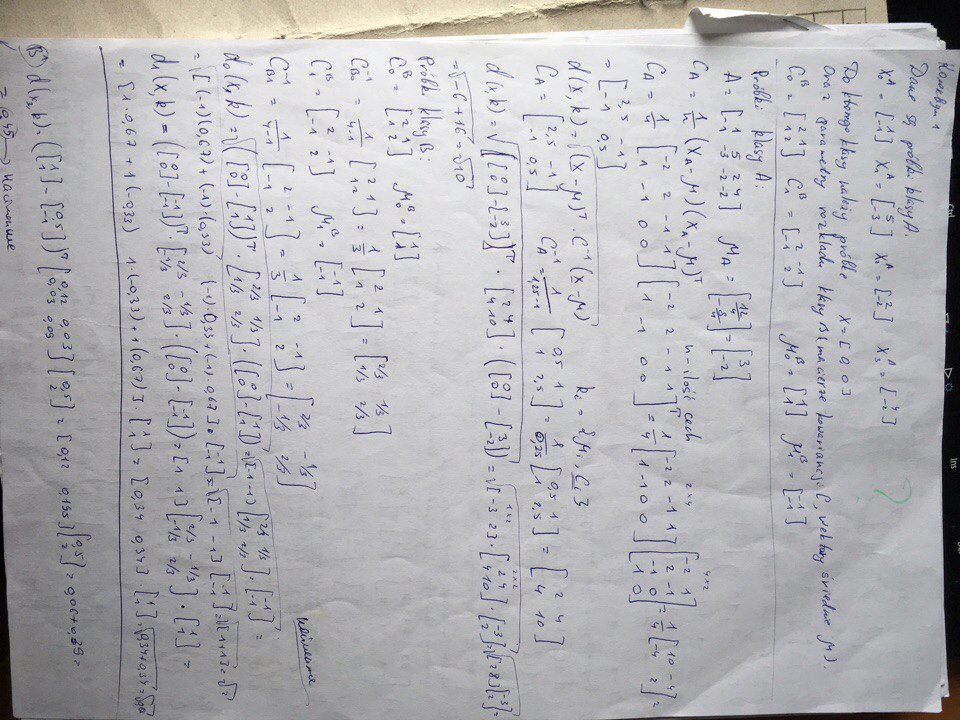 Kolokwium 1
Dane są próbki klasy A:
X₀ᴬ = [1 -1] X₁ᴬ = [5 -3] X₂ᴬ = [2 -2] X₃ᴬ = [4 -2]
Do którego klasy należy próbka X = [0 0]
oraz parametry rozkładu klasy B (macierze kowariancji C, wektory średnie μ).
C₀ᴮ = [2 1; 1 2] C₁ᴮ = [2 -1; -1 2] μ₀ᴮ = [1 1] μ₁ᴮ = [-1 -1]
Próbki klasy A:
A = [1 5 2 4; -1 -3 -2 -2] μA = [12/4; -8/4] = [3; -2]
CA = 1/n (XA-μ)(XA-μ)ᵀ n - ilość cech
CA = 1/4 [-2 2 -1 1; 1 -1 0 0] [-2 2 -1 1; 1 -1 0 0]ᵀ = 1/4 [-2 2 -1 1; 1 -1 0 0] [-2 1; 2 -1; -1 0; 1 0] = 1/4 [10 -4; -4 2] =
= [2,5 -1; -1 0,5]
d(x,k) = √(X-μ)ᵀ · C⁻¹ (X-μ) kᵢ = {μᵢ, Cᵢ}
CA = [2,5 -1; -1 0,5] CA⁻¹ = 1/1,25-1 [0,5 1; 1 2,5] = 1/0,25 [0,5 1; 1 2,5] = [2 4; 4 10]
d(x,k) = √([0 0] - [3 -2])ᵀ · [2 4; 4 10] · ([0 0] - [3 -2]) = √[-3 2] · [2 4; 4 10] · [-3 2] = √[2 8] [-3 2] =
= √-6+16 = √10
Próbki klasy B:
C₀ᴮ = [2 1; 1 2] μ₀ᴮ = [1 1]
CB₀⁻¹ = 1/4-1 [2 1; 1 2] = 1/3 [2 1; 1 2] = [2/3 1/3; 1/3 2/3]
C₁ᴮ = [2 -1; -1 2] μ₁ᴮ = [-1 -1]
CB₁⁻¹ = 1/4-1 [2 -1; -1 2] = 1/3 [2 -1; -1 2] = [2/3 -1/3; -1/3 2/3]
d₀(x,k) = √([0 0] [1 1])ᵀ · [2/3 1/3; 1/3 2/3] · ([0 0] [1 1]) = √[-1 -1] [2/3 1/3; 1/3 2/3] · [-1 -1] =
= √[(-1)(0,67)+(-1)·(0,33) (-1)0,33+(-1)·0,67] · [-1 -1] = √[-1 -1] [-1 -1] = √[1+1] = √2
d₁(x,k) = ([0 0] - [-1 -1])ᵀ · [2/3 -1/3; -1/3 2/3] · ([0 0] - [-1 -1]) = [1 1] [2/3 -1/3; -1/3 2/3] · [1 1] =
= [1·0,67+1(-0,33) 1(-0,33)+1(0,67)] · [1 1] = [0,34 0,34] · [1 1] = √0,34+0,34 = √0,68
B d(x,k) = ([1 -1] - [0,5 -5])ᵀ [0,12 0,03; 0,03 0,09] [0,5 2] = [0,12 0,195] [0,5 2] = 0,06+0,39 =
= 0,45